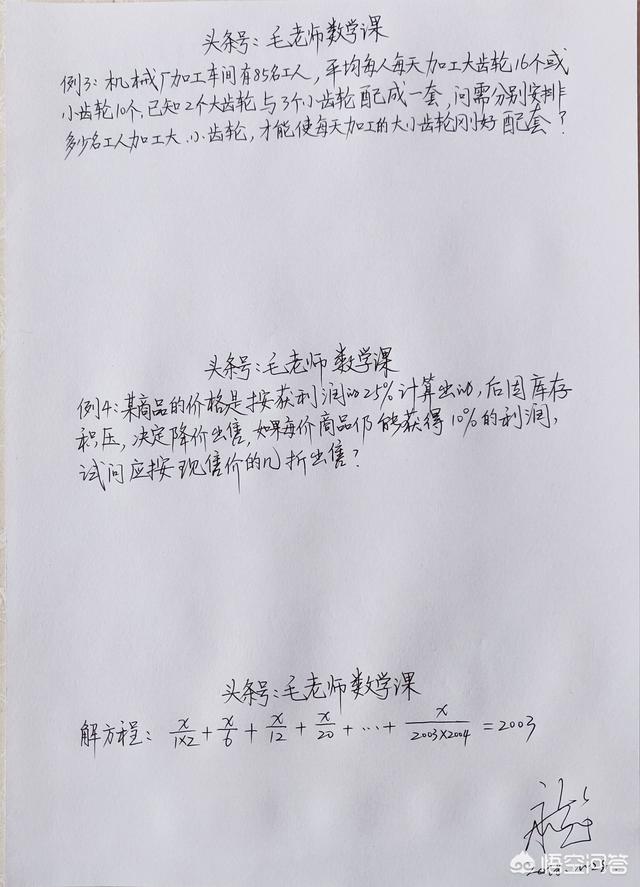 头条号:毛老师数学课
例3:机械厂加工车间有85名工人,平均每人每天加工大齿轮16个或
小齿轮10个,已知2个大齿轮与3个小齿轮配成一套,问需分别安排
多少名工人加工大、小齿轮,才能使每天加工的大小齿轮刚好配套?
头条号:毛老师数学课
例4:某商品的价格是按获利润的25%计算出的,后因库存
积压,决定降价出售,如果每价商品仍能获得10%的利润,
试问应按现售价的几折出售?
头条号:毛老师数学课
解方程: x/1×2 + x/6 + x/12 + x/20 + … + x/2003×2004 = 2003
悟空问答